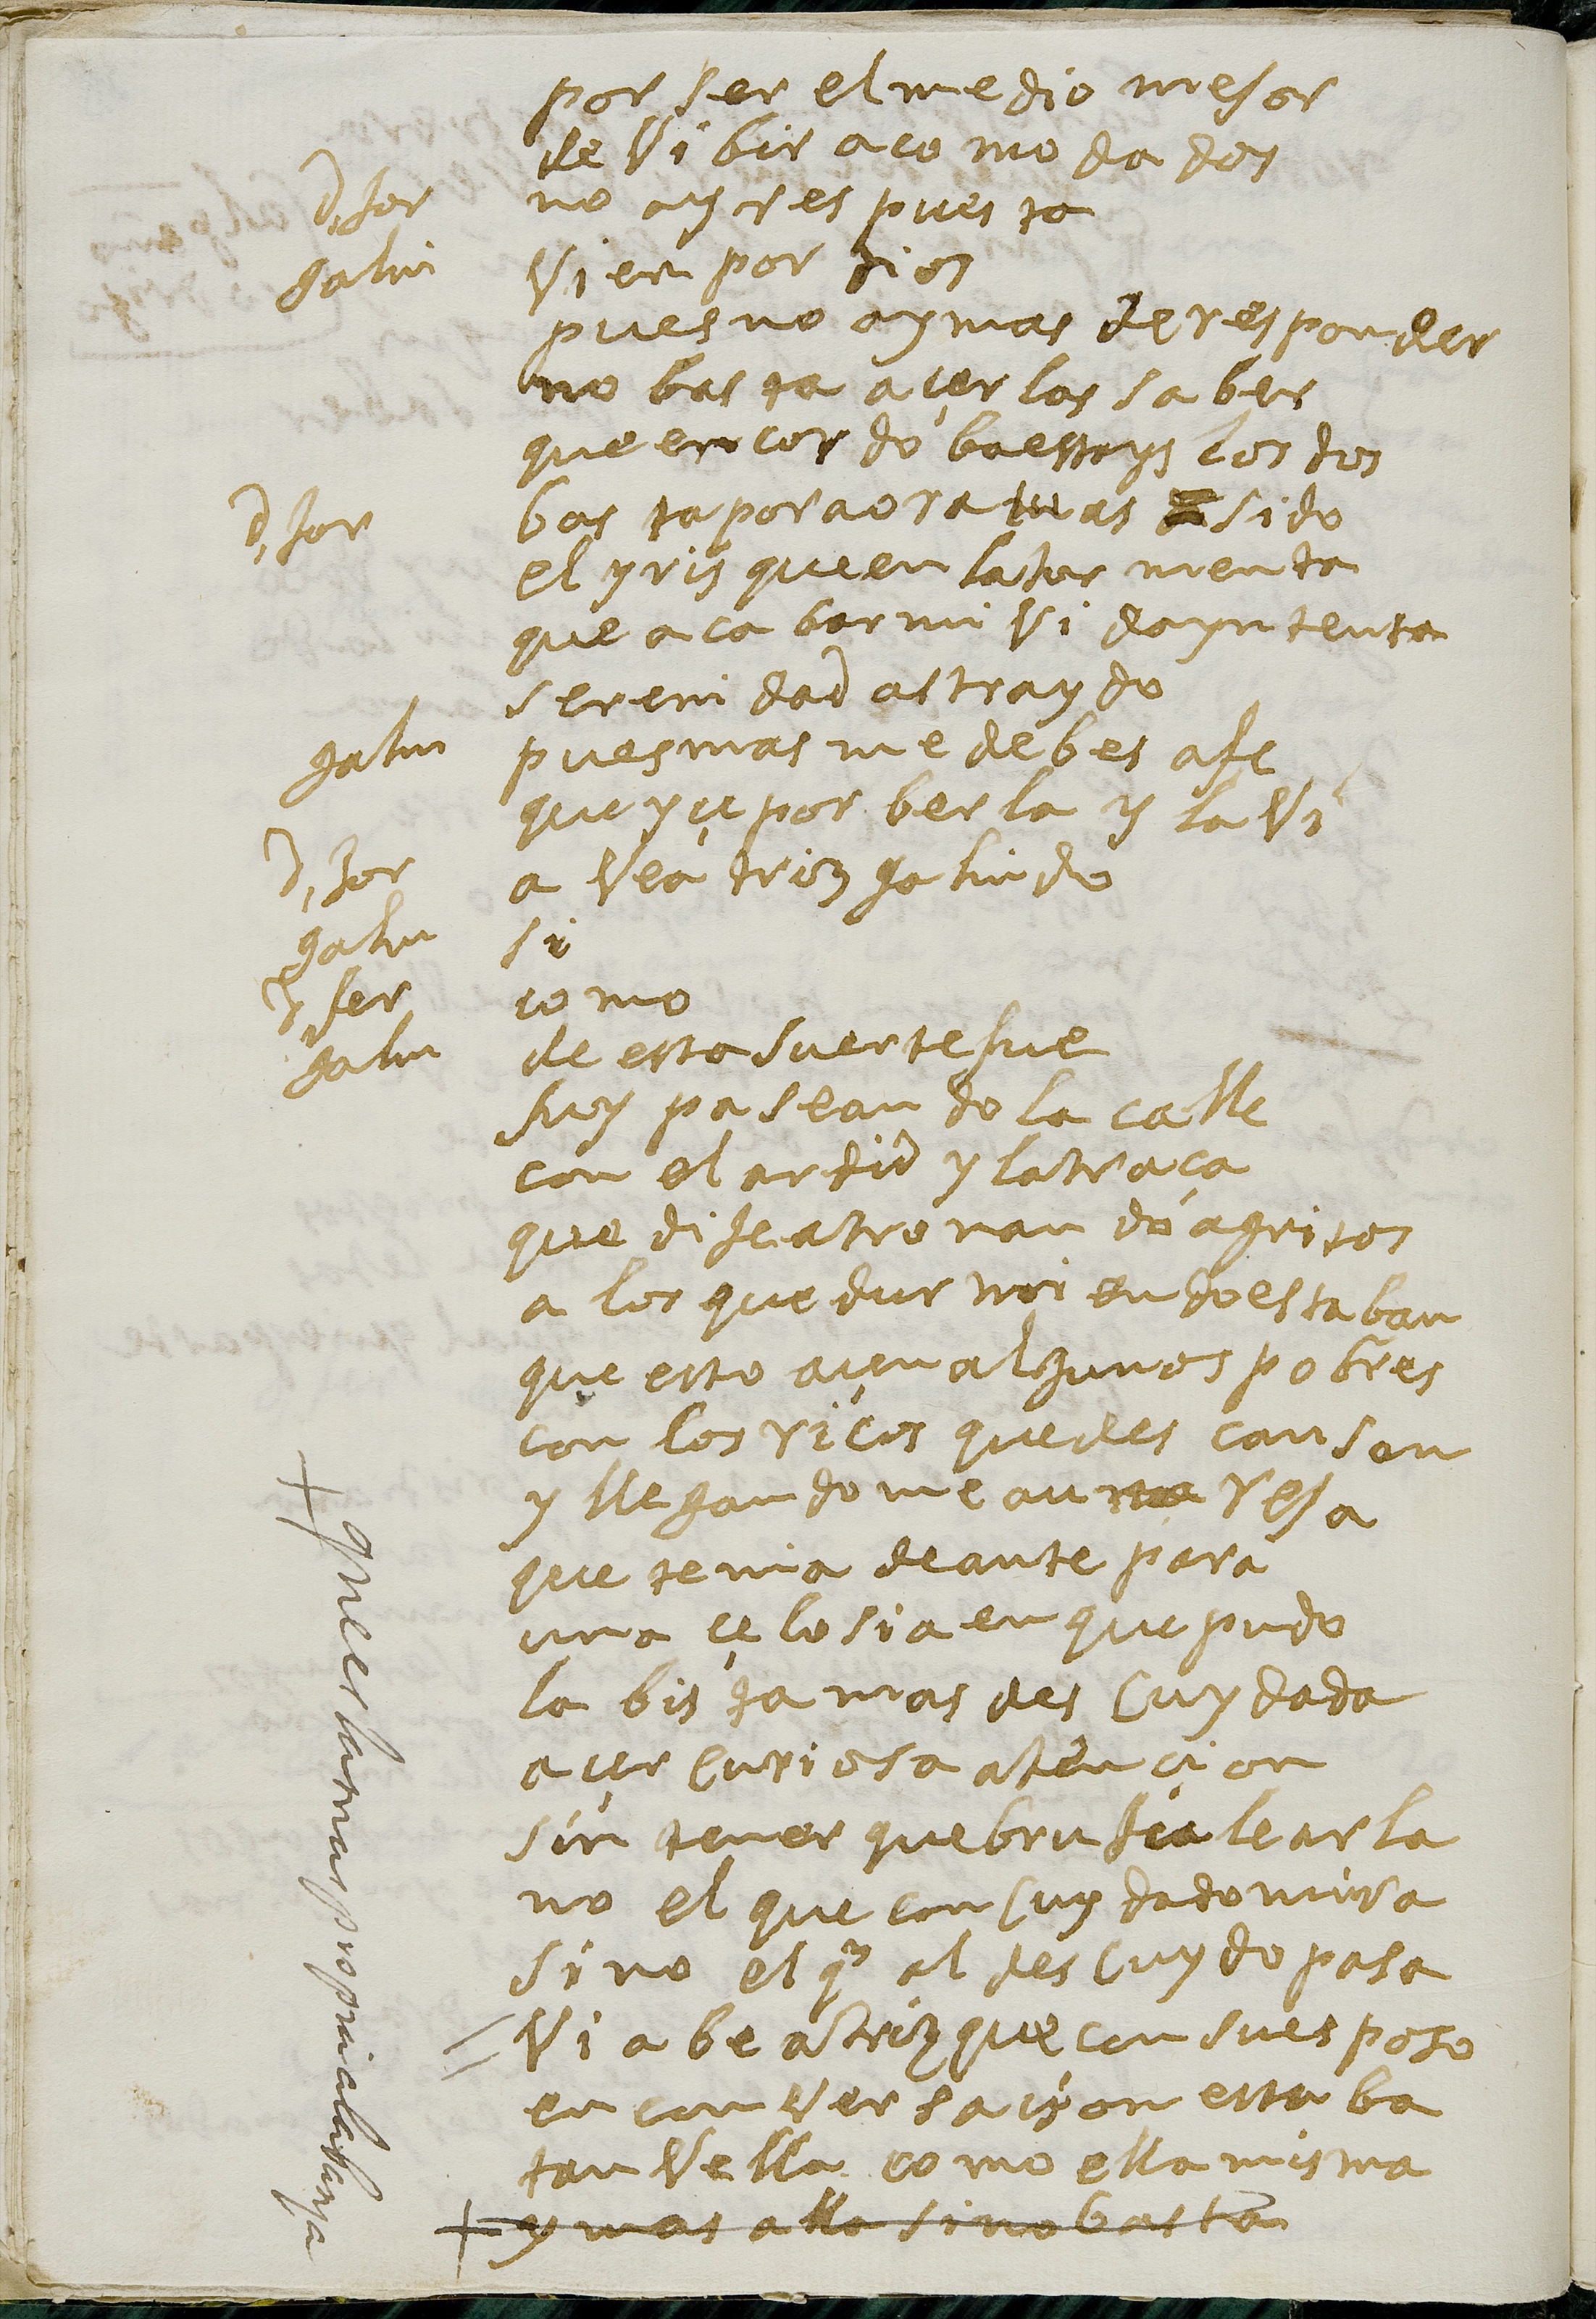 por ser el medio mejor
de Vibir acomodados
d, jor no ay respuesta
galin Vien por dios
pues no ay mas de responder
no basta açerlos saber
que en cordoba estays los dos
d, jor basta por aora tu as sido
el yris que en la tormenta
que acabar mi Vida yntenta
serenidad as traydo
galin pues mas me debes a fe
que yçe por berla y la Vi
d, jor a Veatriz galindo
galin si
d, fer como
galin de esta suerte fue
fuy paseando la calle
con el ardid y la traça
que dije atronando a gritos
a los que durmiendo estaban
que esto açen algunos pobres
con los ricos que descansan
y llegandome a una reja
que tenia de ante para
una çelosia en que pudo
la bista mas descuydada
açer curiosa atençion
sin tener que brujulearla
no el que con cuydado mira
sino el q al descuydo pasa
Vi a beatriz que con su esposo
en conVersaçion estaba
tan Vella como ella misma
y mas alla si no basta
+ que es la mas propria alabança